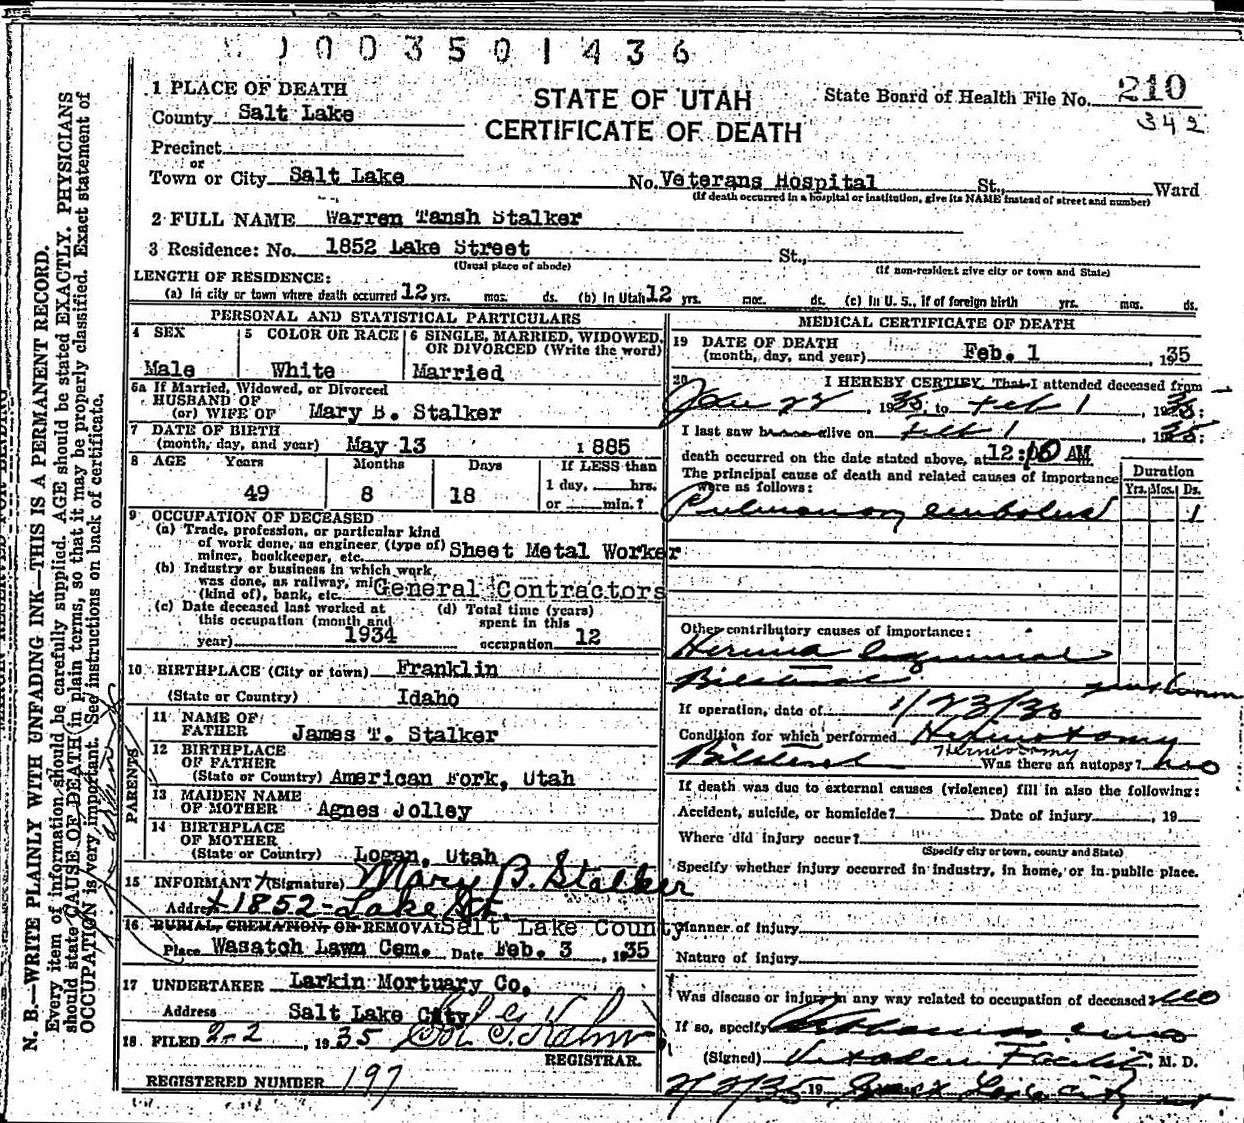 0003501436
1 PLACE OF DEATH
STATE OF UTAH
CERTIFICATE OF DEATH
State Board of Health File No. 210
342
County Salt Lake
Precinct
or
Town or City Salt Lake No. Veterans Hospital St., Ward
(If death occurred in a hospital or institution, give its NAME instead of street and number)
2 FULL NAME Warren Tansh Stalker
3 Residence: No. 1852 Lake Street St.,
(Usual place of abode) (If non-resident give city or town and State)
LENGTH OF RESIDENCE:
(a) In city or town where death occurred 12 yrs. mos. ds. (b) In Utah 12 yrs. mos. ds. (c) In U. S., if of foreign birth yrs. mos. ds.
PERSONAL AND STATISTICAL PARTICULARS
4 SEX Male
5 COLOR OR RACE White
6 SINGLE, MARRIED, WIDOWED, OR DIVORCED (Write the word) Married
6a If Married, Widowed, or Divorced
HUSBAND OF
(or) WIFE OF Mary B. Stalker
7 DATE OF BIRTH
(month, day, and year) May 13 1885
8 AGE Years Months Days If LESS than
1 day, hrs.
49 8 18 or min.?
9 OCCUPATION OF DECEASED
(a) Trade, profession, or particular kind
of work done, as engineer (type of)
miner, bookkeeper, etc. Sheet Metal Worker
(b) Industry or business in which work
was done, as railway, mi
(kind of), bank, etc. General Contractors
(c) Date deceased last worked at
this occupation (month and
year) 1934
(d) Total time (years)
spent in this
occupation 12
10 BIRTHPLACE (City or town) Franklin
(State or Country) Idaho
PARENTS
11 NAME OF
FATHER James T. Stalker
12 BIRTHPLACE
OF FATHER
(State or Country) American Fork, Utah
13 MAIDEN NAME
OF MOTHER Agnes Jolley
14 BIRTHPLACE
OF MOTHER
(State or Country) Logan, Utah
15 INFORMANT (Signature) Mary B. Stalker
Address 1852 - Lake St.
16 BURIAL, CREMATION, OR REMOVAL Salt Lake County
Place Wasatch Lawn Cem. Date Feb. 3, 1935
17 UNDERTAKER Larkin Mortuary Co.
Address Salt Lake City
18 FILED 2-2, 1935
REGISTRAR.
REGISTERED NUMBER 197
MEDICAL CERTIFICATE OF DEATH
19 DATE OF DEATH
(month, day, and year) Feb. 1, 1935
20 I HEREBY CERTIFY, That I attended deceased from
Jan 22, 1935, to Feb 1, 1935;
I last saw alive on Feb 1, 1935;
death occurred on the date stated above, at 12:10 AM
The principal cause of death and related causes of importance
were as follows:
Duration
Yrs. Mos. Ds.
Pulmonary embolus 1
Other contributory causes of importance:
Hernia Inguinal
Bilateral unknown
If operation, date of 1/23/35
Condition for which performed Herniotomy
Herniotomy
Bilateral Was there an autopsy? no
If death was due to external causes (violence) fill in also the following:
Accident, suicide, or homicide? Date of injury, 19
Where did injury occur?
(Specify city or town, county and State)
Specify whether injury occurred in industry, in home, or in public place.
Manner of injury
Nature of injury
Was disease or injury in any way related to occupation of deceased? no
If so, specify
(Signed) Veterans Facility, M. D.
2/2/35 19 Salt Lake City Ut
N. B.—WRITE PLAINLY WITH UNFADING INK—THIS IS A PERMANENT RECORD.
Every item of information should be carefully supplied. AGE should be stated EXACTLY. PHYSICIANS
should state CAUSE OF DEATH in plain terms, so that it may be properly classified. Exact statement of
OCCUPATION is very important. See instructions on back of certificate.